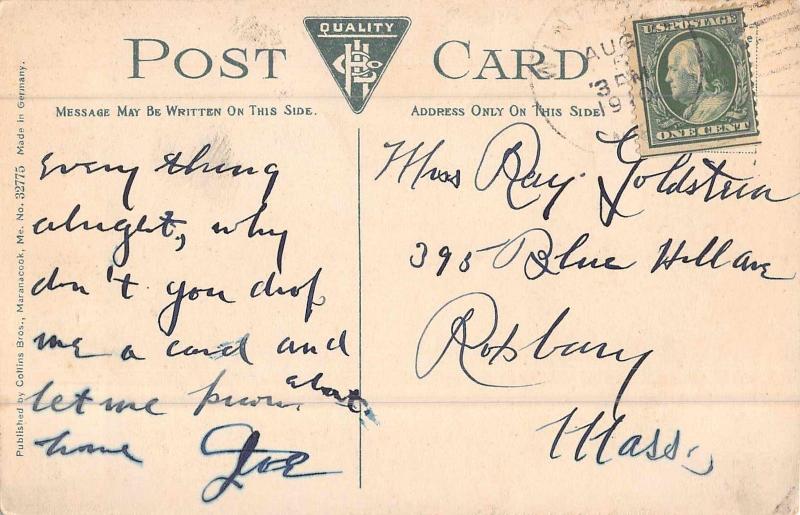 QUALITY
POST CARD
MESSAGE MAY BE WRITTEN ON THIS SIDE.
ADDRESS ONLY ON THIS SIDE
Every thing
alright, why
don't you drop
me a card and
let me know about
home Joe
Miss Ray Goldstein
395 Blue Hill ave
Roxbury
Mass.
AUG
3 PM
U.S. POSTAGE
ONE CENT
Published by Collins Bros., Maranacook, Me. No. 32775 Made in Germany.